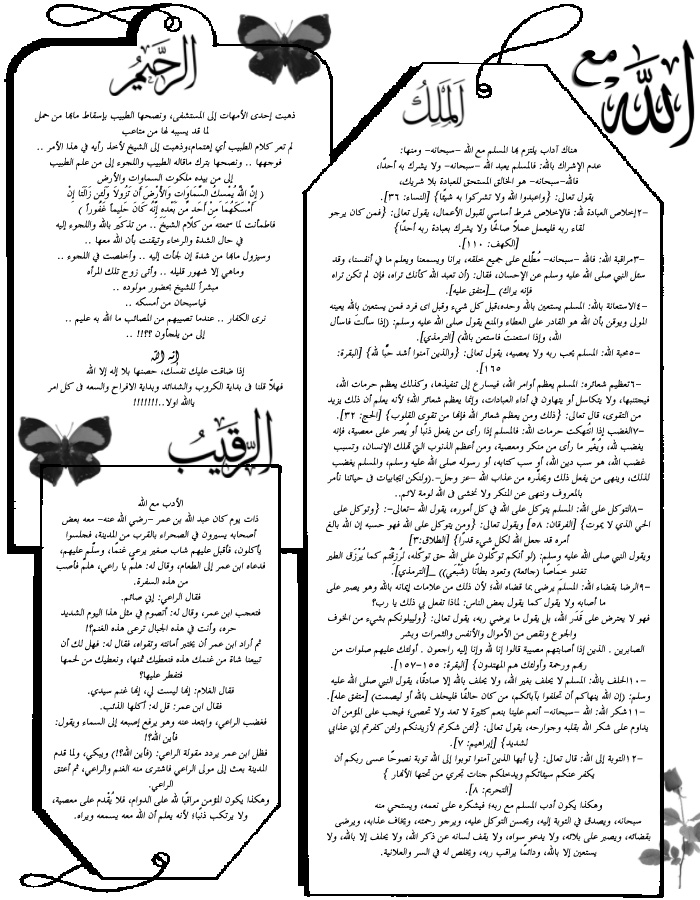 مع الله
الملك
هناك آداب يلتزم بها المسلم مع الله -سبحانه- ومنها:
عدم الإشراك بالله: فالمسلم يعبد الله -سبحانه- ولا يشرك به أحدًا،
فالله-سبحانه- هو الخالق المستحق للعبادة بلا شريك،
يقول تعالى: {واعبدوا الله ولا تشركوا به شيئًا} [النساء: ٣٦].
-٢إخلاص العبادة لله: فالإخلاص شرط أساسي لقبول الأعمال، يقول تعالى: {فمن كان يرجو
لقاء ربه فليعمل عملاً صالحًا ولا يشرك بعبادة ربه أحدًا}
[الكهف: ١١٠].
-٣مراقبة الله: فالله -سبحانه- مُطَّلع على جميع خلقه، يرانا ويسمعنا ويعلم ما في أنفسنا، وقد
سئل النبي صلى الله عليه وسلم عن الإحسان، فقال: (أن تعبد الله كأنك تراه، فإن لم تكن تراه
فإنه يراك) _[متفق عليه].
-٤الاستعانة بالله: المسلم يستعين بالله وحده،قبل كل شيء وقبل اى فرد فمن يستعين بالله يعينه
المولى ويوقن بأن الله هو القادر على العطاء والمنع يقول صلى الله عليه وسلم: (إذا سألتَ فاسأل
الله، وإذا استعنتَ فاستعن بالله) [الترمذي].
-٥محبة الله: المسلم يحب ربه ولا يعصيه، يقول تعالى: {والذين آمنوا أشد حبًّا لله} [البقرة:
١٦٥].
-٦تعظيم شعائره: المسلم يعظم أوامر الله، فيسارع إلى تنفيذها، وكذلك يعظم حرمات الله،
فيجتنبها، ولا يتكاسل أو يتهاون في أداء العبادات، وإنما يعظم شعائر الله؛ لأنه يعلم أن ذلك يزيد
من التقوى، قال تعالى: {ذلك ومن يعظم شعائر الله فإنها من تقوى القلوب} [الحج: ٣٢].
-٧الغضب إذا انتُهكت حرمات الله: فالمسلم إذا رأى من يفعل ذنبًا أو يُصر على معصية، فإنه
يغضب لله، ويُغيِّر ما رأى من منكر ومعصية، ومن أعظم الذنوب التي تهلك الإنسان، وتسبب
غضب الله، هو سب دين الله، أو سب كتابه، أو رسوله صلى الله عليه وسلم، والمسلم يغضب
لذلك، وينهى من يفعل ذلك ويحذِّره من عذاب الله -عز وجل-.(ولنكن ايجابيات فى حياتنا نأمر
بالمعروف وننهى عن المنكر ولا نخشى فى الله لومة لائم..
-٨التوكل على الله: المسلم يتوكل على الله في كل أموره، يقول الله -تعالى-: {وتوكل على
الحي الذي لا يموت} [الفرقان: ٥٨] ويقول تعالى: {ومن يتوكل على الله فهو حسبه إن الله بالغ
أمره قد جعل الله لكل شيء قدرًا} [الطلاق:٣]
ويقول النبي صلى الله عليه وسلم: (لو أنكم توكَّلون على الله حق توكَّله، لرُزِقْتُم كما يُرْزَق الطير
تغدو خِمَاصًا (جائعة) وتعود بطانًا (شَبْعَي)) _[الترمذي].
-٩الرضا بقضاء الله: المسلم يرضى بما قضاه الله؛ لأن ذلك من علامات إيمانه بالله وهو يصبر على
ما أصابه ولا يقول كما يقول بعض الناس: لماذا تفعل بي ذلك يا رب؟
فهو لا يعترض على قَدَر الله، بل يقول ما يرضي ربه، يقول تعالى: {ولنبلونكم بشيء من الخوف
والجوع ونقص من الأموال والأنفس والثمرات وبشر
الصابرين . الذين إذا أصابتهم مصيبة قالوا إنا لله وإنا إليه راجعون . أولئك عليهم صلوات من
ربهم ورحمة وأولئك هم المهتدون} [البقرة: ١٥٥-١٥٧].
-١٠الحلف بالله: المسلم لا يحلف بغير الله، ولا يحلف بالله إلا صادقًا، يقول النبي صلى الله عليه
وسلم: (إن الله ينهاكم أن تحلفوا بآبائكم، من كان حالفًا فليحلف بالله أو ليصمت) [متفق عليه].
-١١شكر الله: الله -سبحانه- أنعم علينا بنعم كثيرة لا تعد ولا تحصى؛ فيجب على المؤمن أن
يداوم على شكر الله بقلبه وجوارحه، يقول تعالى: {لئن شكرتم لأزيدنكم ولئن كفرتم إني عذابي
لشديد} [إبراهيم: ٧].
-١٢التوبة إلى الله: قال تعالى: {يا أيها الذين آمنوا توبوا إلى الله توبة نصوحًا عسى ربكم أن
يكفر عنكم سيئاتكم ويدخلكم جنات تجري من تحتها الأنهار }
[التحريم: ٨].
وهكذا يكون أدب المسلم مع ربه؛ فيشكره على نعمه، ويستحي منه
سبحانه، ويصدق في التوبة إليه، ويحسن التوكل عليه، ويرجو رحمته، ويخاف عذابه، ويرضى
بقضائه، ويصبر على بلائه، ولا يدعو سواه، ولا يقف لسانه عن ذكر الله، ولا يحلف إلا بالله، ولا
يستعين إلا بالله، ودائمًا يراقب ربه، ويخلص له في السر والعلانية.
الرحيم
ذهبت إحدى الأمهات إلى المستشفى، ونصحها الطبيب بإسقاط مابها من حمل
لما قد يسببه لها من متاعب
لم تعر كلام الطبيب أي إهتمام،وذهبت إلى الشيخ لأخذ رأيه في هذا الأمر ..
فوجهها .. ونصحها بترك ماقاله الطبيب واللجوء إلى من علم الطبيب
إلى من بيده ملكوت السماوات والأرض
( إِنَّ اللَّهَ يُمْسِكُ السَّمَاوَاتِ وَالْأَرْضَ أَن تَزُولَا وَلَئِن زَالَتَا إِنْ
أَمْسَكَهُمَا مِنْ أَحَدٍ مِّن بَعْدِهِ إِنَّهُ كَانَ حَلِيماً غَفُوراً )
فاطمأنت لما سمعته من كلام الشيخ .. من تذكير بالله واللجوء إليه
في حال الشدة والرخاء وتيقنت بأن الله معها ..
وسيزول مابها من شدة إن لجأت إليه .. وأخلصت في اللجوء ..
وماهي إلا شهور قليله .. وأتى زوج تلك المرأه
مبشراً للشيخ بحضور مولوده ..
فياسبحان من أمسكه ..
نرى الكفار .. عندما تصيبهم من المصائب ما الله به عليم ..
إلى من يلجأون ؟؟!! ..
إنه الله
إذا ضاقت عليك نفسك، حصنها بلا إله إلا الله
فهلاَّ قلنا فى بداية الكروب والشدائد وبداية الافراح والسعه فى كل امر
ياالله اولا..!!!!!!!
الرقيب
الأدب مع الله
ذات يوم كان عبد الله بن عمر -رضي الله عنه- معه بعض
أصحابه يسيرون في الصحراء بالقرب من المدينة، فجلسوا
يأكلون، فأقبل عليهم شاب صغير يرعى غنمًا، وسلَّم عليهم،
فدعاه ابن عمر إلى الطعام، وقال له: هلمَّ يا راعي، هلم فأصب
من هذه السفرة.
فقال الراعي: إني صائم.
فتعجب ابن عمر، وقال له: أتصوم في مثل هذا اليوم الشديد
حره، وأنت في هذه الجبال ترعى هذه الغنم؟!
ثم أراد ابن عمر أن يختبر أمانته وتقواه، فقال له: فهل لك أن
تبيعنا شاة من غنمك هذه فنعطيك ثمنها، ونعطيك من لحمها
فتفطر عليها؟
فقال الغلام: إنها ليست لي، إنها غنم سيدي.
فقال ابن عمر: قل له: أكلها الذئب.
فغضب الراعي، وابتعد عنه وهو يرفع إصبعه إلى السماء ويقول:
فأين الله؟!
فظل ابن عمر يردد مقولة الراعي: (فأين الله؟!) ويبكي، ولما قدم
المدينة بعث إلى مولى الراعي فاشترى منه الغنم والراعي، ثم أعتق
الراعي.
وهكذا يكون المؤمن مراقبًا لله على الدوام، فلا يُقْدم على معصية،
ولا يرتكب ذنبًا؛ لأنه يعلم أن الله معه يسمعه ويراه.